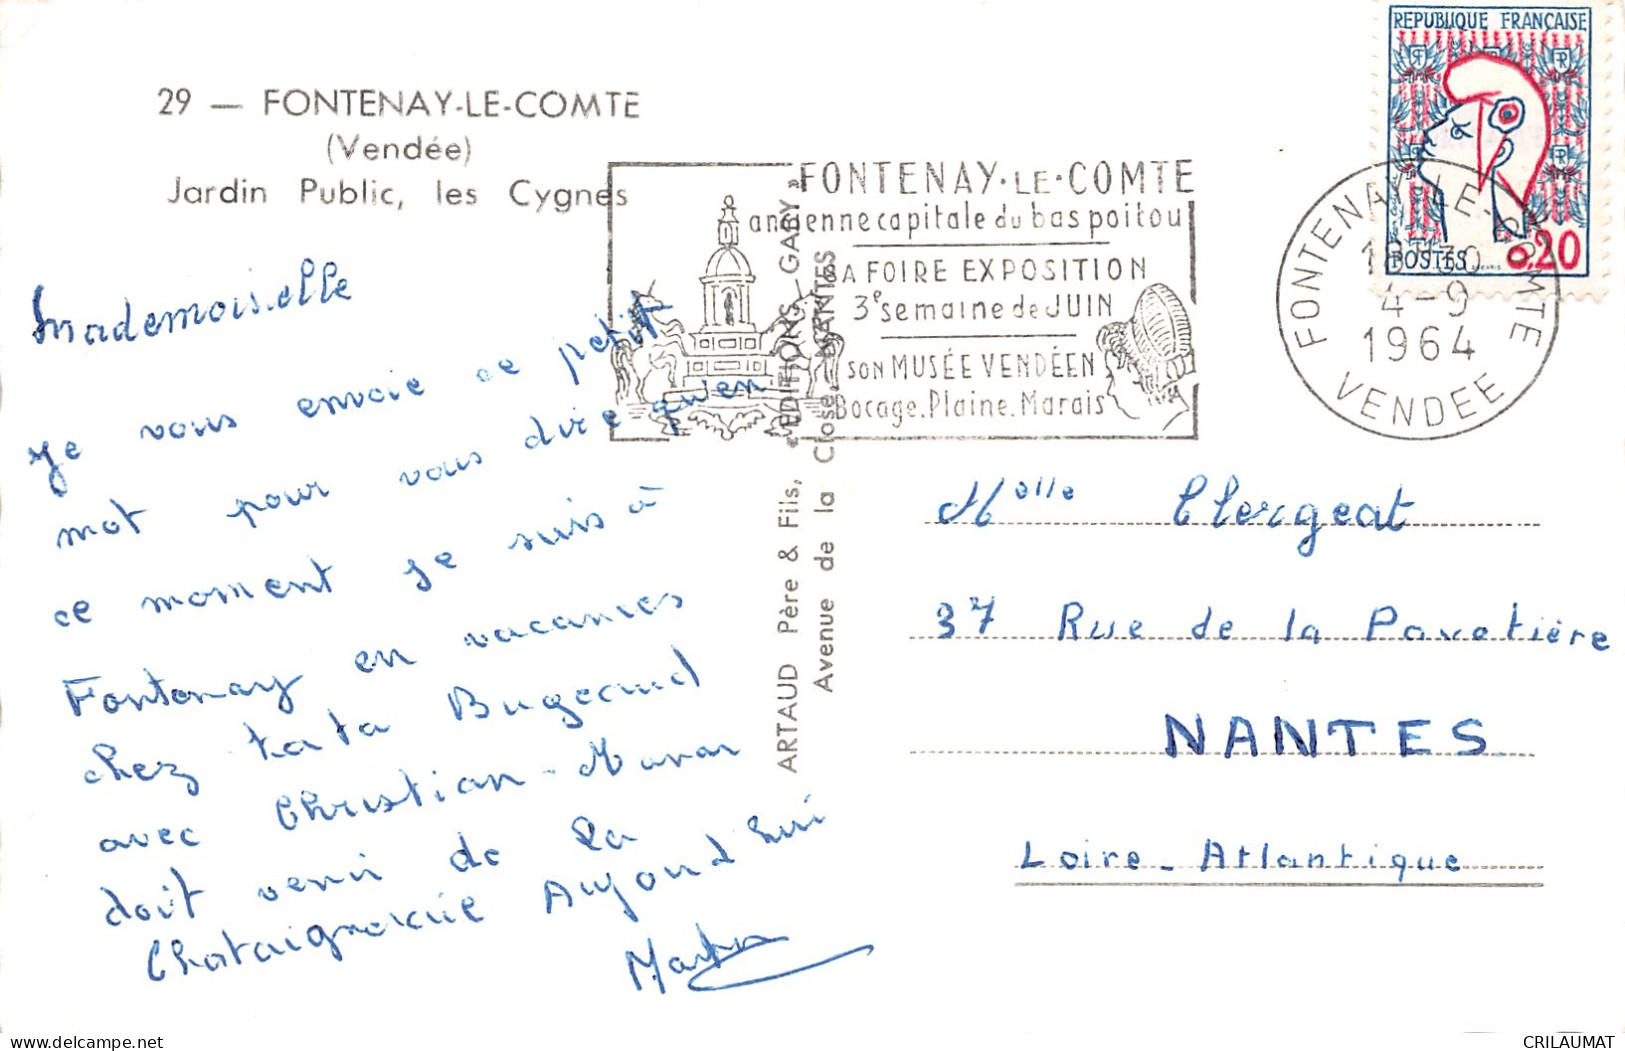 29 — FONTENAY-LE-COMTE
(Vendée)
Jardin Public, les Cygnes
Mademoiselle
Je vous envoie ce petit
mot pour vous dire qu'en
ce moment je suis à
Fontenay en vacances
chez tata Bugeaud
avec Christian - Manan
doit venir de la
Chataigneraie Aujourd'hui
ARTAUD Père & Fils, « EDITIONS GABY »
Avenue de la Close, NANTES
FONTENAY·LE·COMTE
ancienne capitale du bas poitou
SA FOIRE EXPOSITION
3e semaine de JUIN
SON MUSÉE VENDÉEN
Bocage. Plaine. Marais
REPUBLIQUE FRANÇAISE
POSTES 0,20
FONTENAY-LE-COMTE
4-9
1964
VENDEE
Melle Clergeat
37 Rue de la Pavetière
NANTES
Loire-Atlantique
delcampe.net
CRILAUMAT